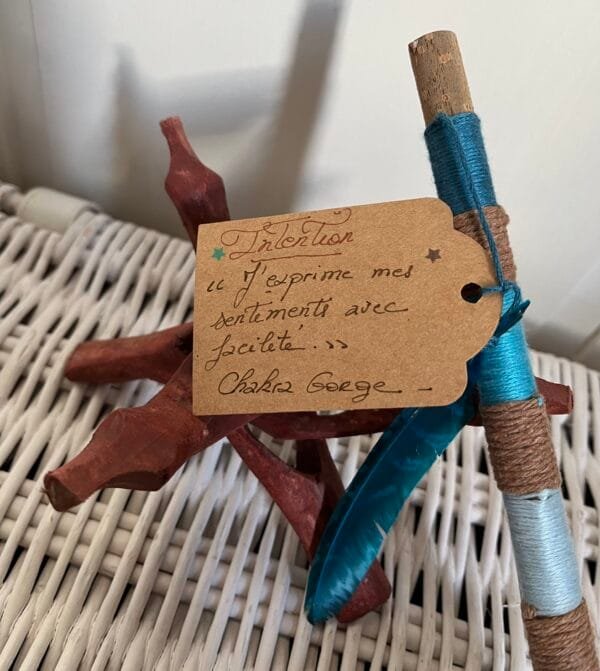 Intention
« J'exprime mes
sentiments avec
facilité. »
Chakra Gorge _